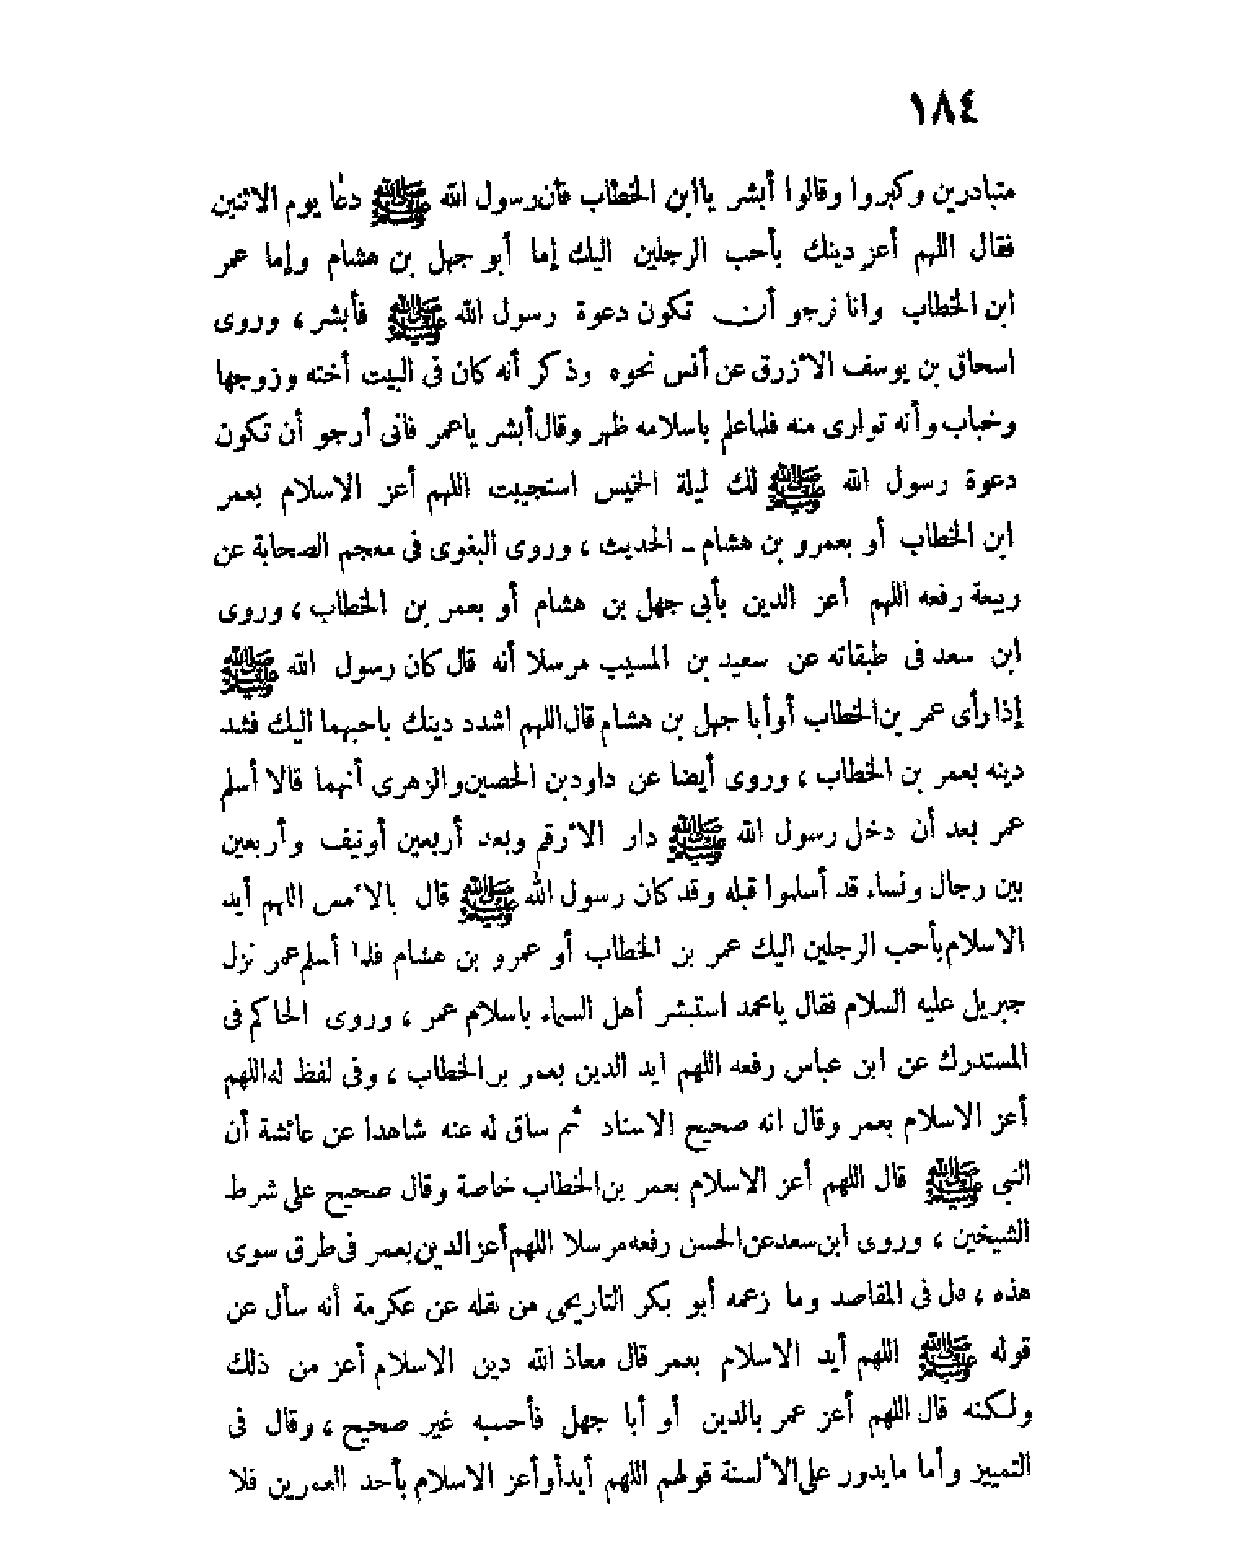 ١٨٤
متبادرين وكبروا وقالوا أبشر ياابن الخطاب فان رسول الله ﷺ دعا يوم الاثنين
فقال اللهم أعز دينك بأحب الرجلين اليك إما أبو جهل بن هشام وإما عمر
ابن الخطاب وانا نرجو أن تكون دعوة رسول الله ﷺ فأبشر ، وروى
اسحاق بن يوسف الأزرق عن أنس نحوه وذكر أنه كان فى البيت أخته وزوجها
وخباب وأنه توارى منه فلما علم باسلامه ظهر وقال أبشر ياعمر فانى أرجو أن تكون
دعوة رسول الله ﷺ لك ليلة الخميس استجيبت اللهم أعز الاسلام بعمر
ابن الخطاب أو بعمرو بن هشام ـ الحديث ، وروى البغوى فى معجم الصحابة عن
ربيعة رفعه اللهم أعز الدين بأبى جهل بن هشام أو بعمر بن الخطاب ، وروى
ابن سعد فى طبقاته عن سعيد بن المسيب مرسلا أنه قال كان رسول الله ﷺ
إذا رأى عمر بن الخطاب أو أبا جهل بن هشام قال اللهم اشدد دينك باحبهما اليك فشد
دينه بعمر بن الخطاب ، وروى أيضا عن داود بن الحصين والزهرى أنهما قالا أسلم
عمر بعد أن دخل رسول الله ﷺ دار الأرقم وبعد أربعين أونيف وأربعين
بين رجال ونساء قد أسلموا قبله وقد كان رسول الله ﷺ قال بالأمس اللهم أيد
الاسلام بأحب الرجلين اليك عمر بن الخطاب أو عمرو بن هشام فلما أسلم عمر نزل
جبريل عليه السلام فقال يامحمد استبشر أهل السماء باسلام عمر ، وروى الحاكم فى
المستدرك عن ابن عباس رفعه اللهم ايد الدين بعمر بن الخطاب ، وفى لفظ له اللهم
أعز الاسلام بعمر وقال انه صحيح الاسناد ثم ساق له عنه شاهدا عن عائشة أن
النبى ﷺ قال اللهم أعز الاسلام بعمر بن الخطاب خاصة وقال صحيح على شرط
الشيخين ، وروى ابن سعد عن الحسن رفعه مرسلا اللهم أعز الدين بعمر فى طرق سوى
هذه ، قال فى المقاصد وما زعمه أبو بكر التاريخى من نقله عن عكرمة أنه سأل عن
قوله ﷺ اللهم أيد الاسلام بعمر قال معاذ الله دين الاسلام أعز من ذلك
ولكنه قال اللهم أعز عمر بالدين أو أبا جهل فأحسبه غير صحيح ، وقال فى
التمييز وأما مايدور على الألسنة قولهم اللهم أيد أو أعز الاسلام بأحد العمرين فلا